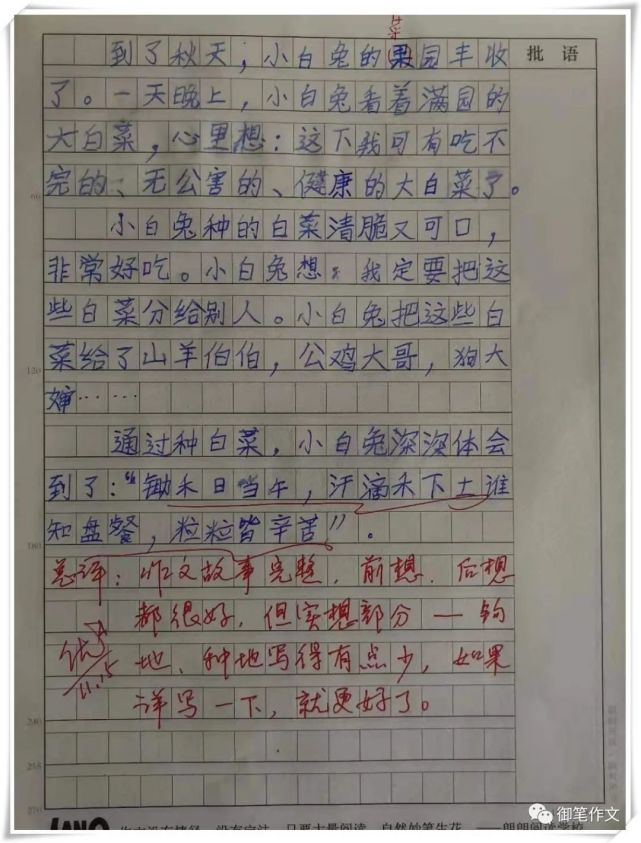 菜
到了秋天，小白兔的果园丰收
批语
了。一天晚上，小白兔看着满园的
大白菜，心里想：这下我可有吃不
完的、无公害的、健康的大白菜了。
60
小白兔种的白菜清脆又可口，
非常好吃。小白兔想：我定要把这
些白菜分给别人。小白兔把这些白
菜给了山羊伯伯，公鸡大哥，狗大
120
婶……
通过种白菜，小白兔深深体会
到了：“锄禾日当午，汗滴禾下土谁
知盘餐，粒粒皆辛苦”。
180
总评：作文故事完整，前想、后想
都很好，但实想部分一
地、种地写得有点少，如果
优
11.15
详写一下，就更好了。
240
255
270
御笔作文